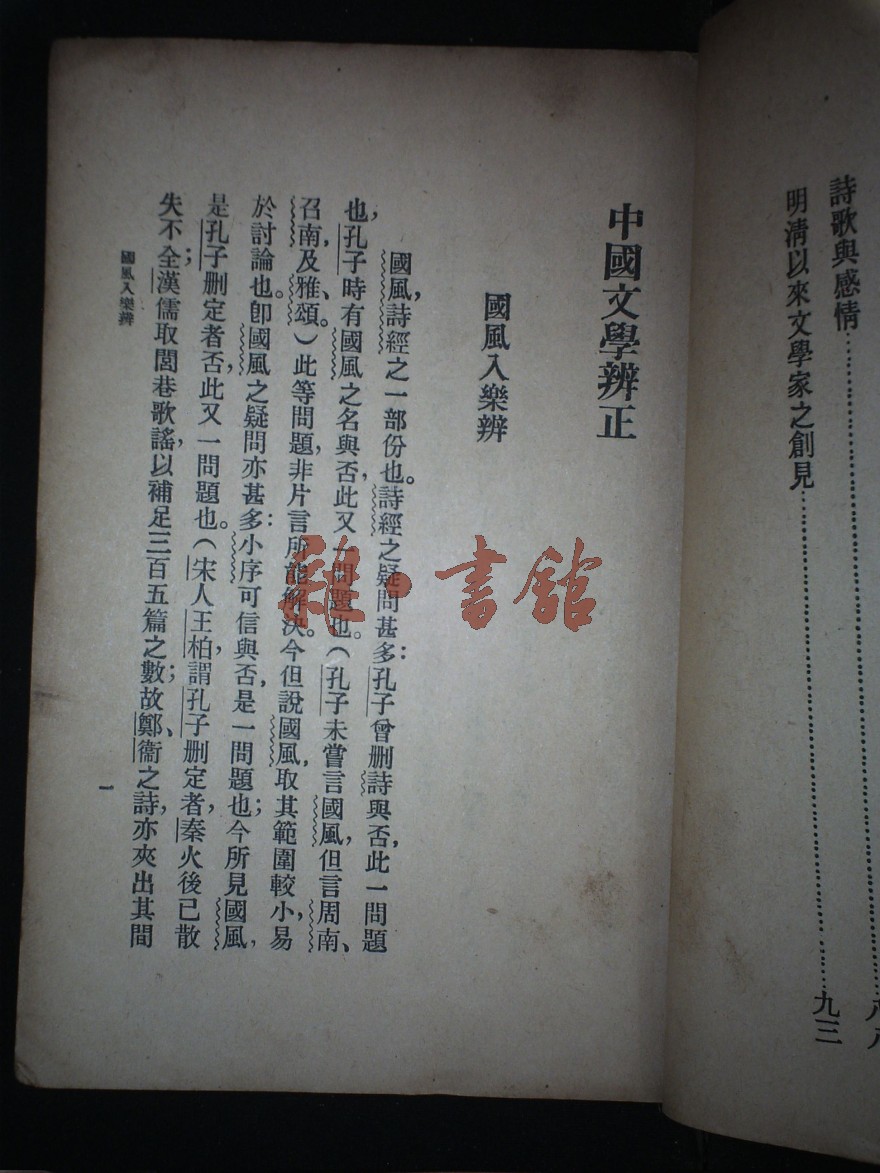 詩歌與感情……………………八八
明清以來文學家之創見……………………九三
中國文學辨正
國風入樂辨
國風，詩經之一部份也。詩經之疑問甚多：孔子曾删詩與否，此一問題
也，孔子時有國風之名與否，此又一問題也。（孔子未嘗言國風，但言周南、
召南，及雅、頌。）此等問題，非片言所能解決。今但說國風，取其範圍較小，易
於討論也。卽國風之疑問亦甚多：小序可信與否，是一問題也；今所見國風，
是孔子删定者否，此又一問題也。（宋人王柏，謂孔子删定者，秦火後已散
失不全；漢儒取閭巷歌謠，以補足三百五篇之數；故鄭、衞之詩，亦夾出其間
國風入樂辨
一
雜·書館